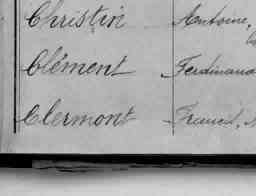 Christin Antoine,
Clément Ferdinand
Clermont